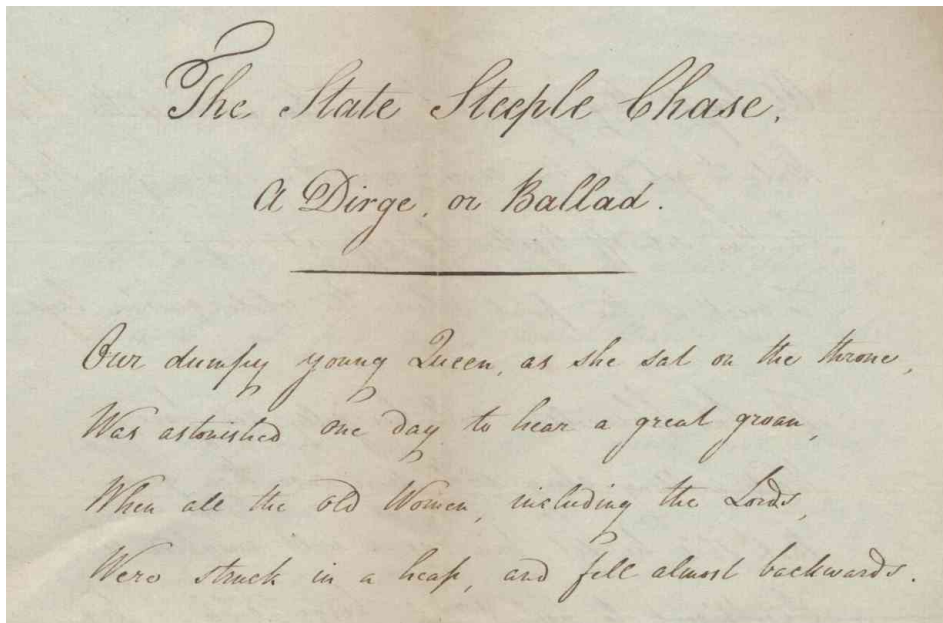 The State Steeple Chase.
A Dirge, or Ballad.
Our dumpy young Queen, as she sat on the throne,
Was astonished one day to hear a great groan,
When all the old Women, including the Lords,
Were struck in a heap, and fell almost backwards.